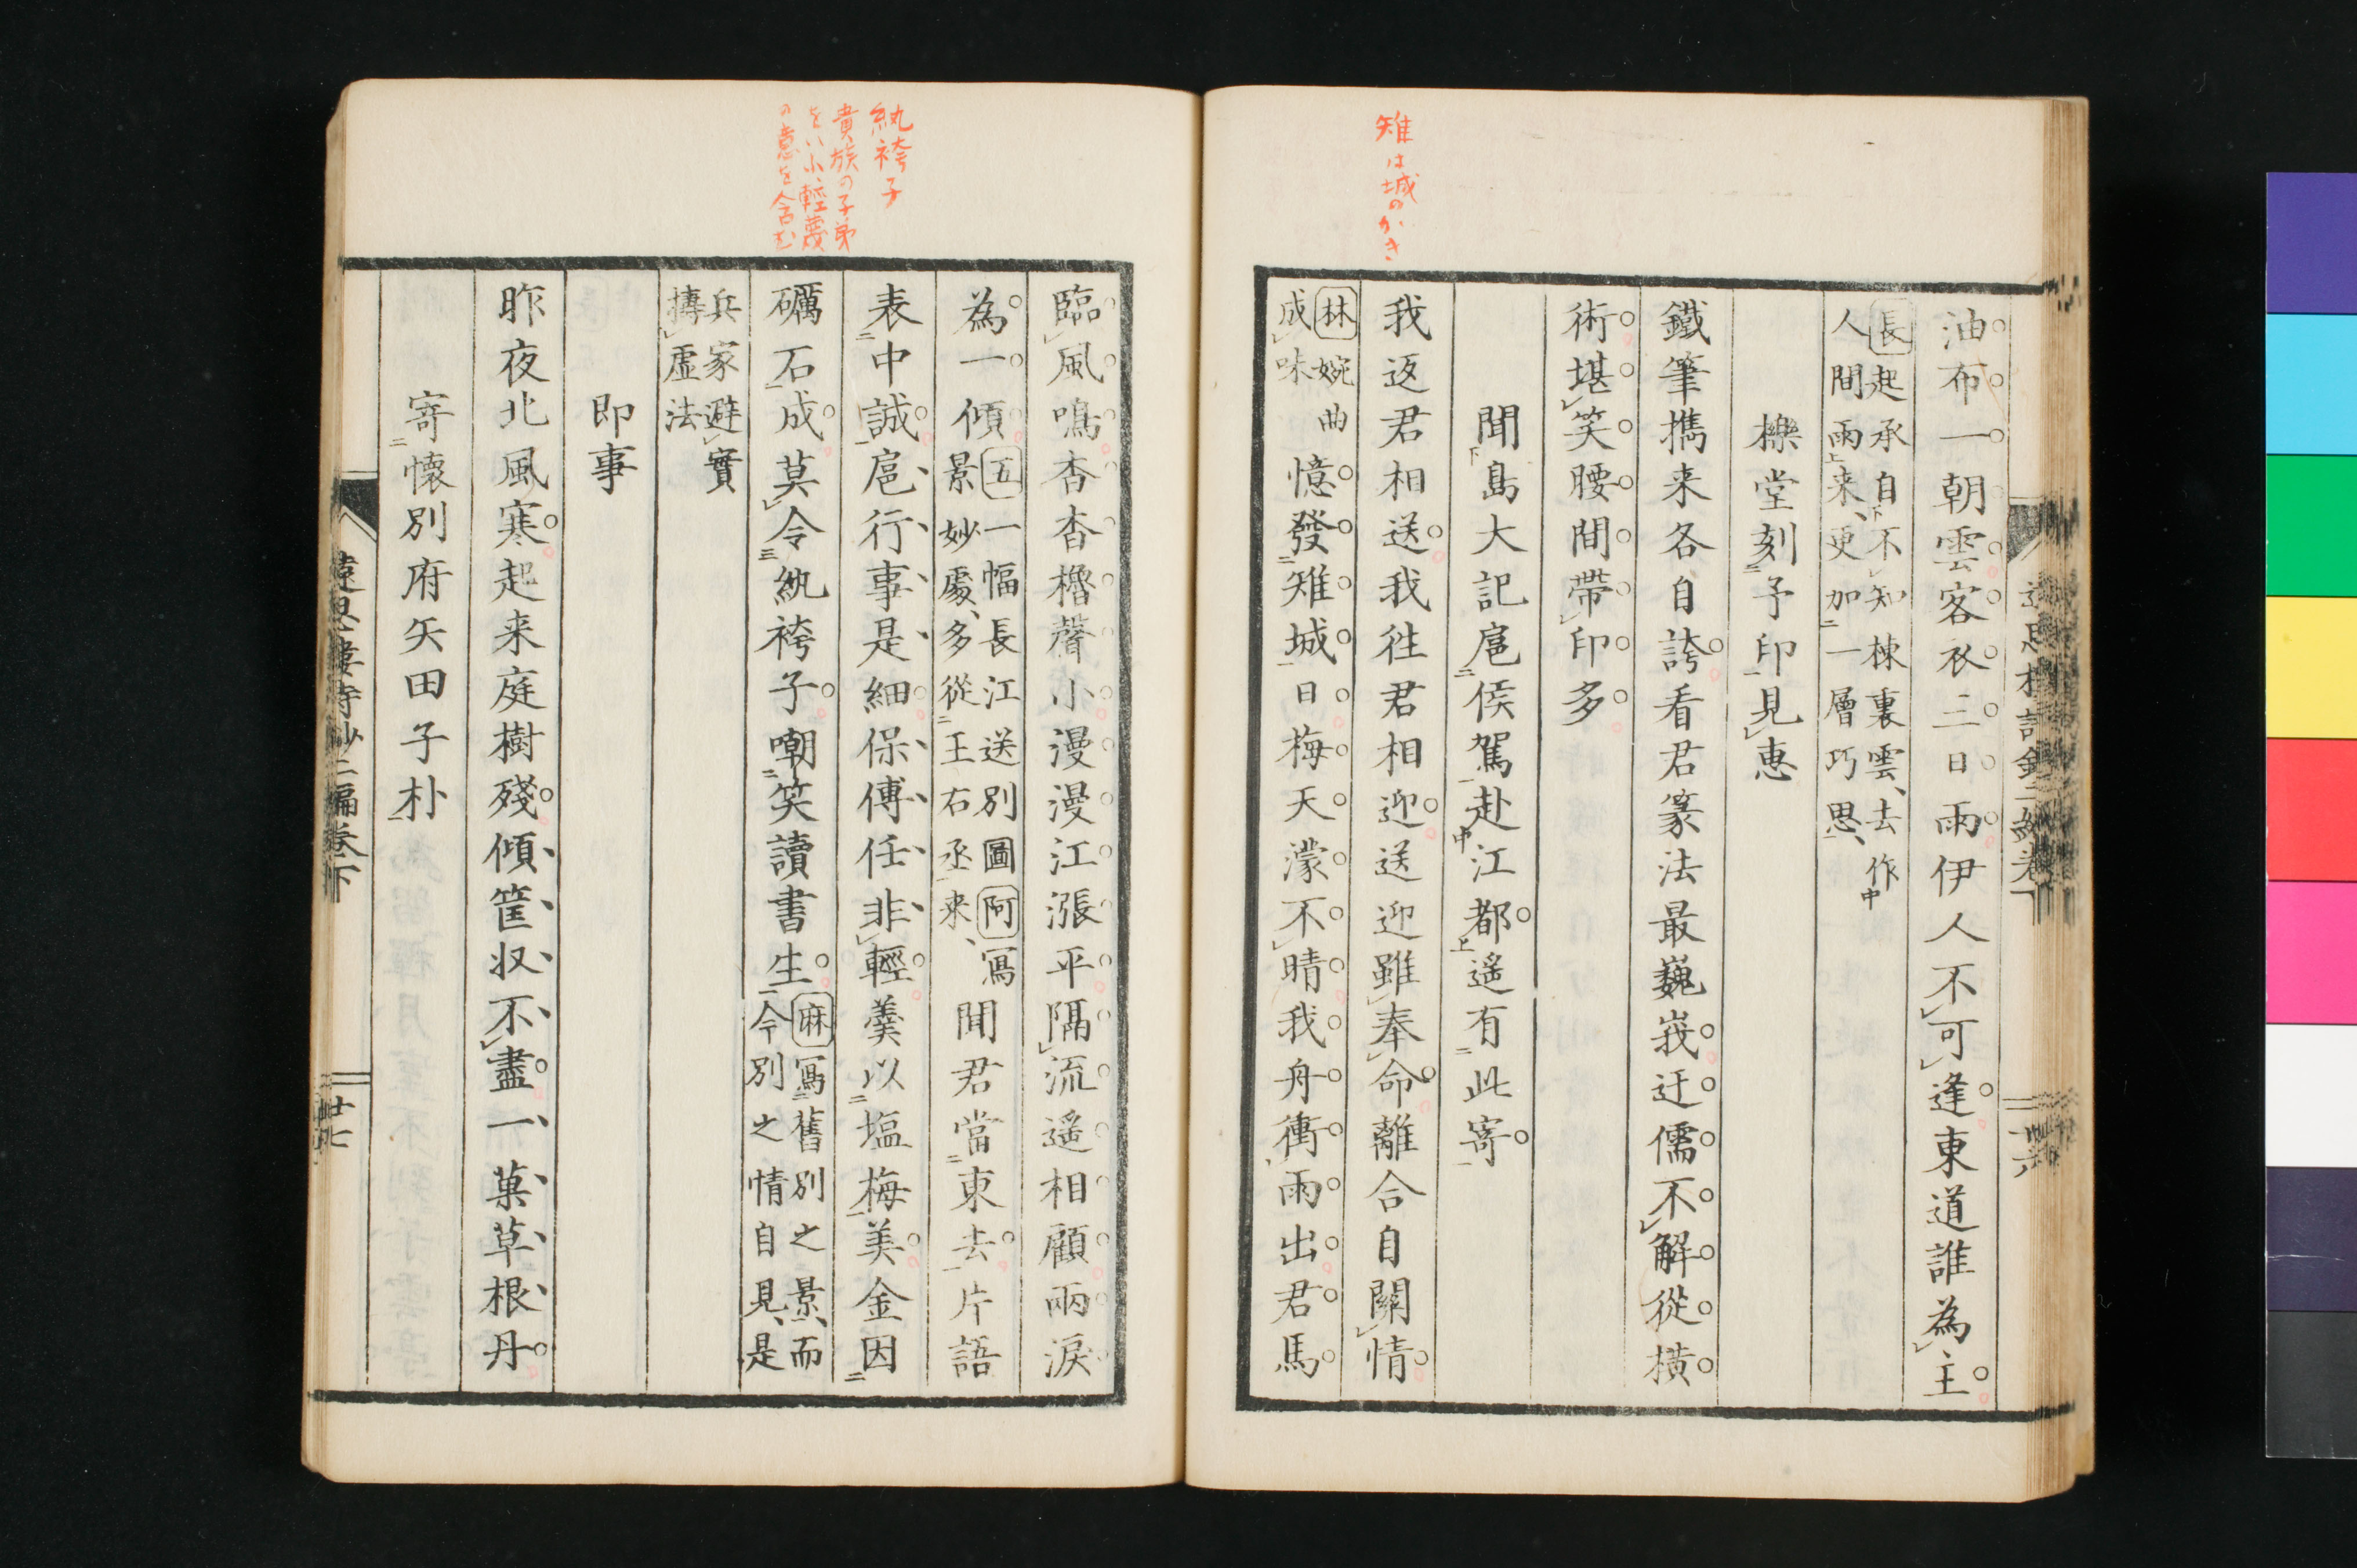 雉は城のかき
油布一朝雲客衣三日雨伊人不可逢東道誰為主
長起承自不知棟裏雲去作
人間雨来更加一層巧思
櫟堂刻予印見惠
鐵筆携来各自誇看君篆法最巍峩迂儒不解從橫
術堪笑腰間帶印多
聞島大記扈侯駕赴江都遙有此寄
我返君相送我徃君相迎送迎雖奉命離合自關情
林婉曲
成味
憶發雉城日梅天濛不晴我舟衝雨出君馬
紈袴子
貴族の子弟
をいふ輕蔑
の意を含む
臨風鳴杳杳櫓聲小漫漫江漲平隔流遙相顧兩淚
為一傾
五一幅長江送別圖阿寫
景妙處多從王右丞来
聞君當東去片語
表中誠扈行事是細保傅任非輕羹以塩梅美金因
礪石成莫令紈袴子嘲笑讀書生
麻寫舊別之景而
今別之情自見是
兵家避實
摶虛法
即事
昨夜北風寒起来庭樹殘傾筐収不盡一菓草根丹
寄懷別府矢田子朴
遠思樓詩鈔二編卷下
廿七